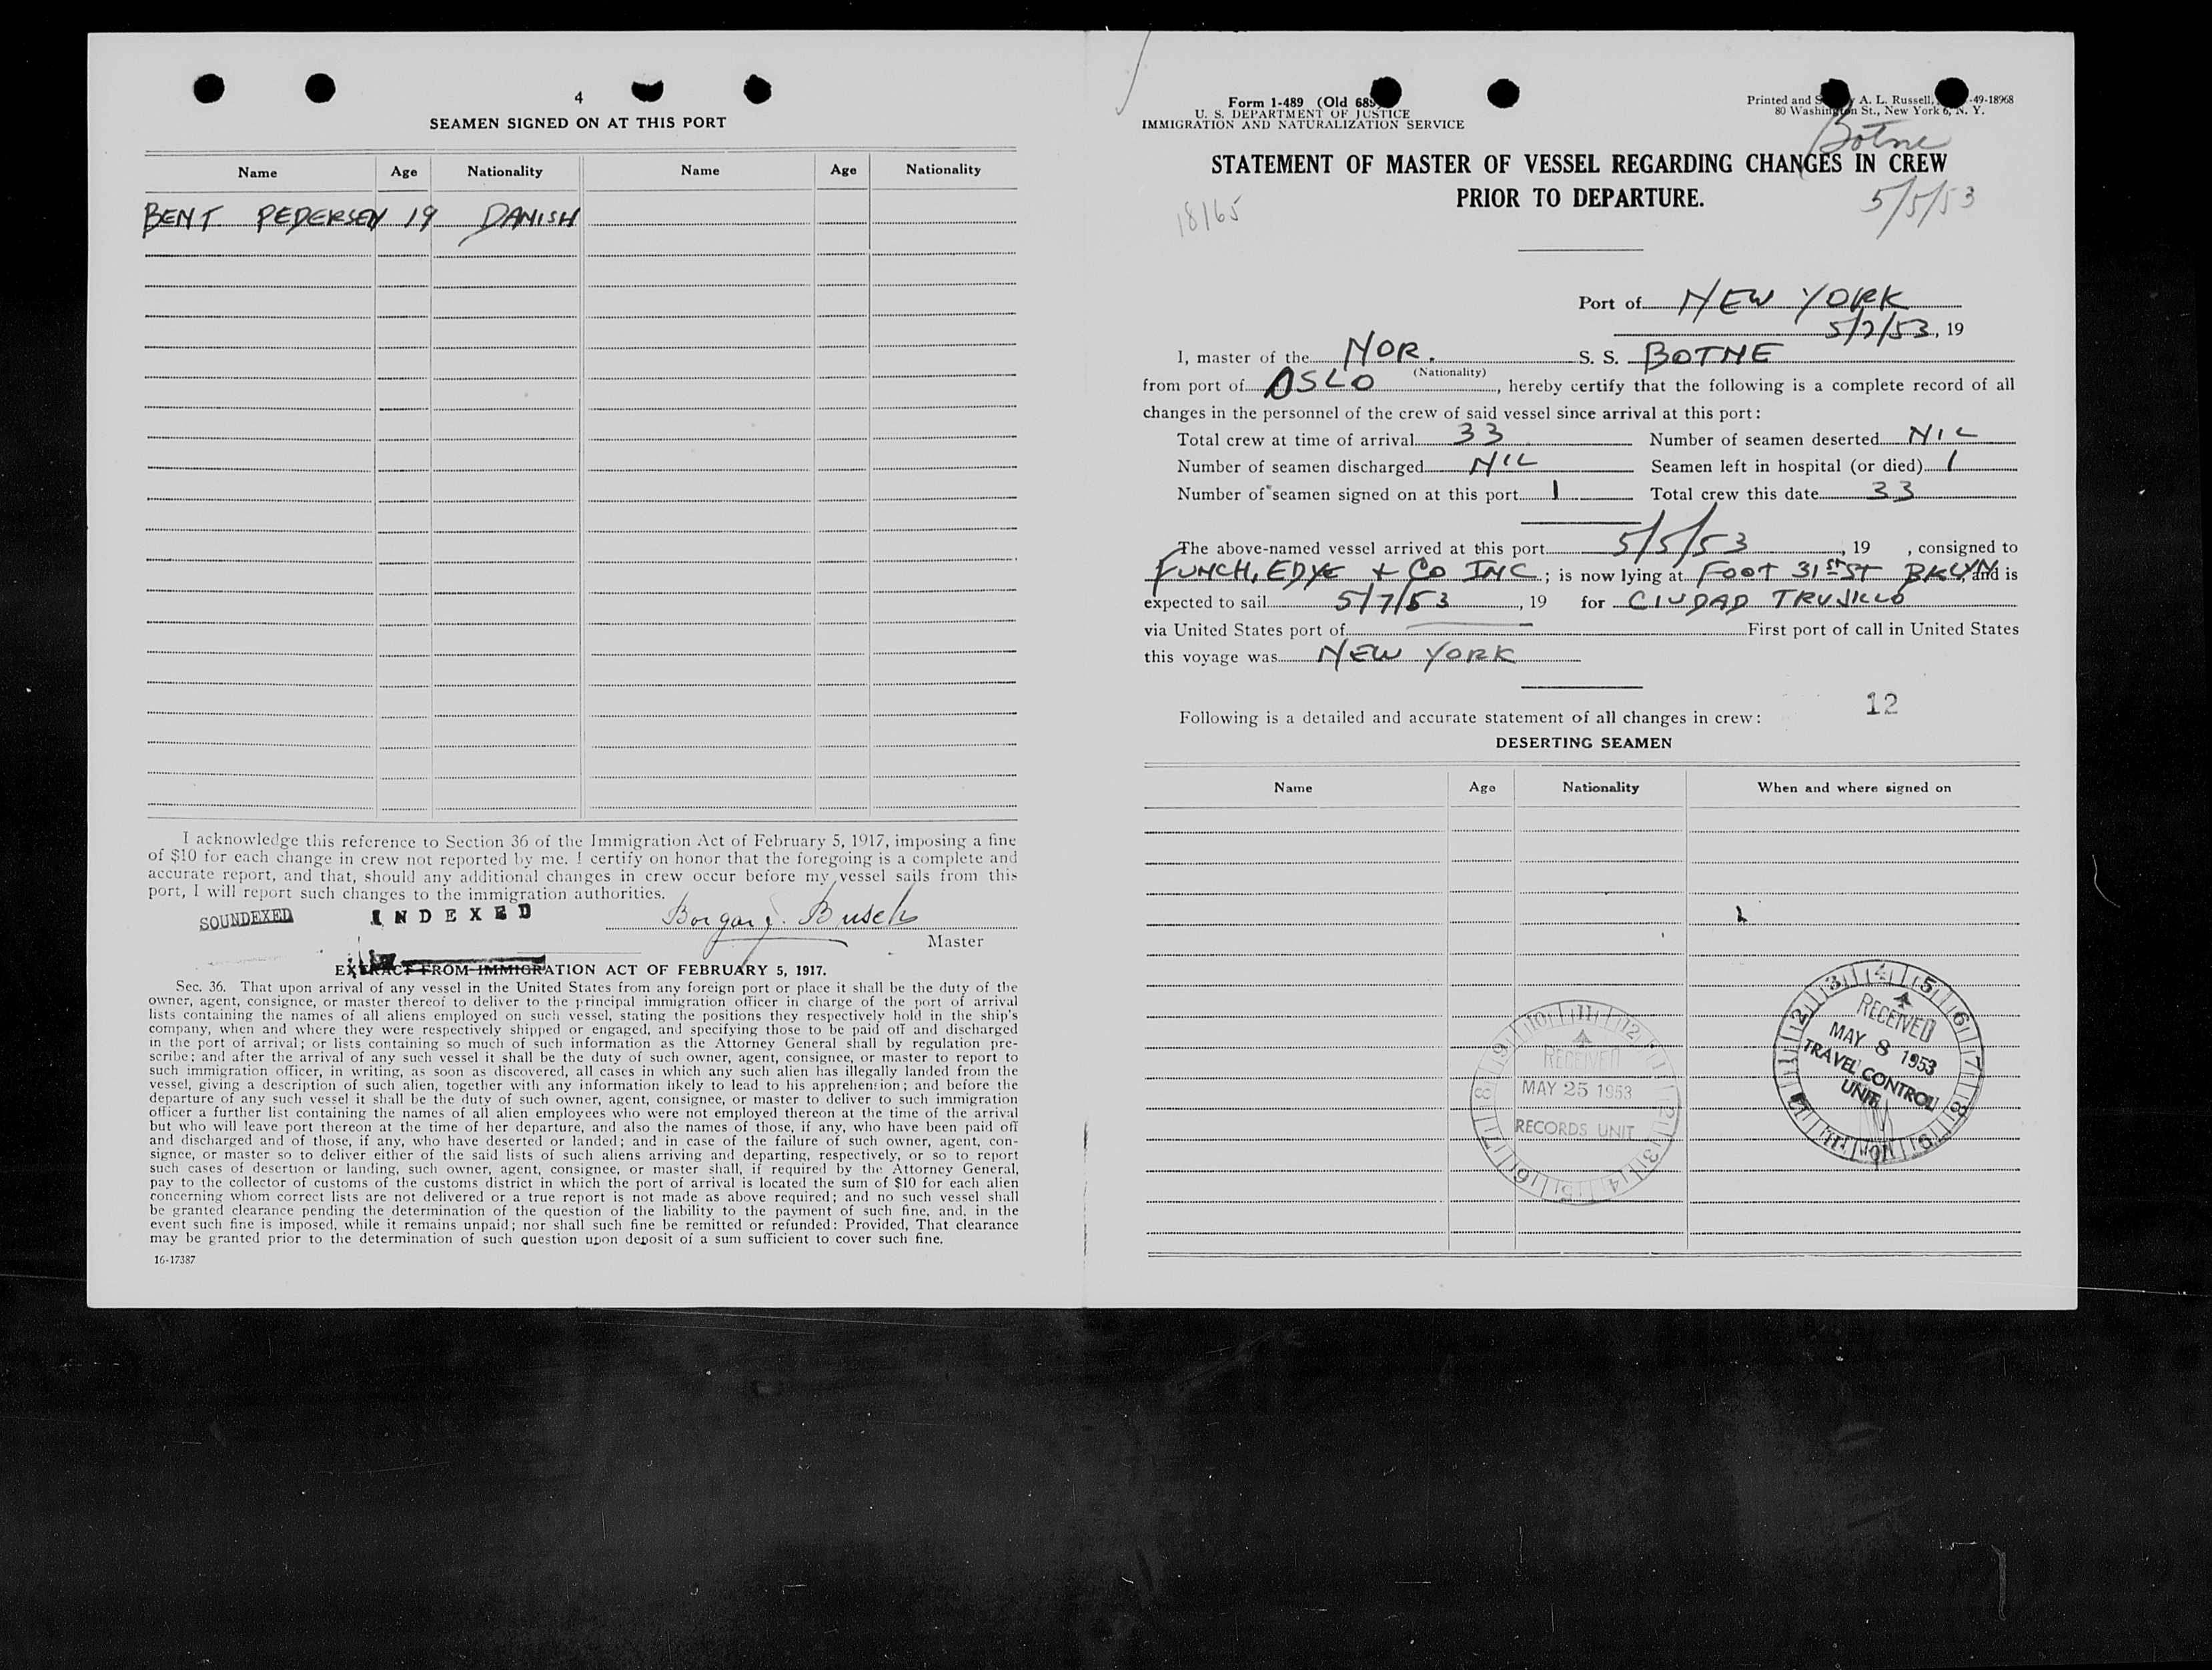 4
SEAMEN SIGNED ON AT THIS PORT
Name Age Nationality Name Age Nationality
BENT PEDERSEN 19 DANISH
I acknowledge this reference to Section 36 of the Immigration Act of February 5, 1917, imposing a fine
of $10 for each change in crew not reported by me. I certify on honor that the foregoing is a complete and
accurate report, and that, should any additional changes in crew occur before my vessel sails from this
port, I will report such changes to the immigration authorities.
SOUNDEXED INDEXED Busch
Master
EXTRACT FROM IMMIGRATION ACT OF FEBRUARY 5, 1917.
Sec. 36. That upon arrival of any vessel in the United States from any foreign port or place it shall be the duty of the
owner, agent, consignee, or master thereof to deliver to the principal immigration officer in charge of the port of arrival
lists containing the names of all aliens employed on such vessel, stating the positions they respectively hold in the ship's
company, when and where they were respectively shipped or engaged, and specifying those to be paid off and discharged
in the port of arrival; or lists containing so much of such information as the Attorney General shall by regulation pre-
scribe; and after the arrival of any such vessel it shall be the duty of such owner, agent, consignee, or master to report to
such immigration officer, in writing, as soon as discovered, all cases in which any such alien has illegally landed from the
vessel, giving a description of such alien, together with any information likely to lead to his apprehension; and before the
departure of any such vessel it shall be the duty of such owner, agent, consignee, or master to deliver to such immigration
officer a further list containing the names of all alien employees who were not employed thereon at the time of the arrival
but who will leave port thereon at the time of her departure, and also the names of those, if any, who have been paid off
and discharged and of those, if any, who have deserted or landed; and in case of the failure of such owner, agent, con-
signee, or master so to deliver either of the said lists of such aliens arriving and departing, respectively, or so to report
such cases of desertion or landing, such owner, agent, consignee, or master shall, if required by the Attorney General,
pay to the collector of customs of the customs district in which the port of arrival is located the sum of $10 for each alien
concerning whom correct lists are not delivered or a true report is not made as above required; and no such vessel shall
be granted clearance pending the determination of the question of the liability to the payment of such fine, and, in the
event such fine is imposed, while it remains unpaid; nor shall such fine be remitted or refunded: Provided, That clearance
may be granted prior to the determination of such question upon deposit of a sum sufficient to cover such fine.
16-17387
Form 1-489 (Old 689
U. S. DEPARTMENT OF JUSTICE
IMMIGRATION AND NATURALIZATION SERVICE
Printed and A. L. Russell, -49-18968
80 Washington St., New York 6, N. Y.
Botne
STATEMENT OF MASTER OF VESSEL REGARDING CHANGES IN CREW
PRIOR TO DEPARTURE.
18165 5/5/53
Port of NEW YORK
5/7/53, 19
I, master of the NOR. S. S. BOTNE
(Nationality)
from port of OSLO, hereby certify that the following is a complete record of all
changes in the personnel of the crew of said vessel since arrival at this port:
Total crew at time of arrival 33 Number of seamen deserted NIL
Number of seamen discharged NIL Seamen left in hospital (or died) 1
Number of seamen signed on at this port 1 Total crew this date 33
The above-named vessel arrived at this port 5/5/53, 19 , consigned to
FUNCH, EDYE + CO INC; is now lying at FOOT 31ST ST BKLYN, and is
expected to sail 5/7/53, 19 for CIUDAD TRUJILLO
via United States port of First port of call in United States
this voyage was NEW YORK
12
Following is a detailed and accurate statement of all changes in crew:
DESERTING SEAMEN
Name Age Nationality When and where signed on
RECEIVED
MAY 8 1953
TRAVEL CONTROL
UNIT
RECEIVED
MAY 25 1953
RECORDS UNIT